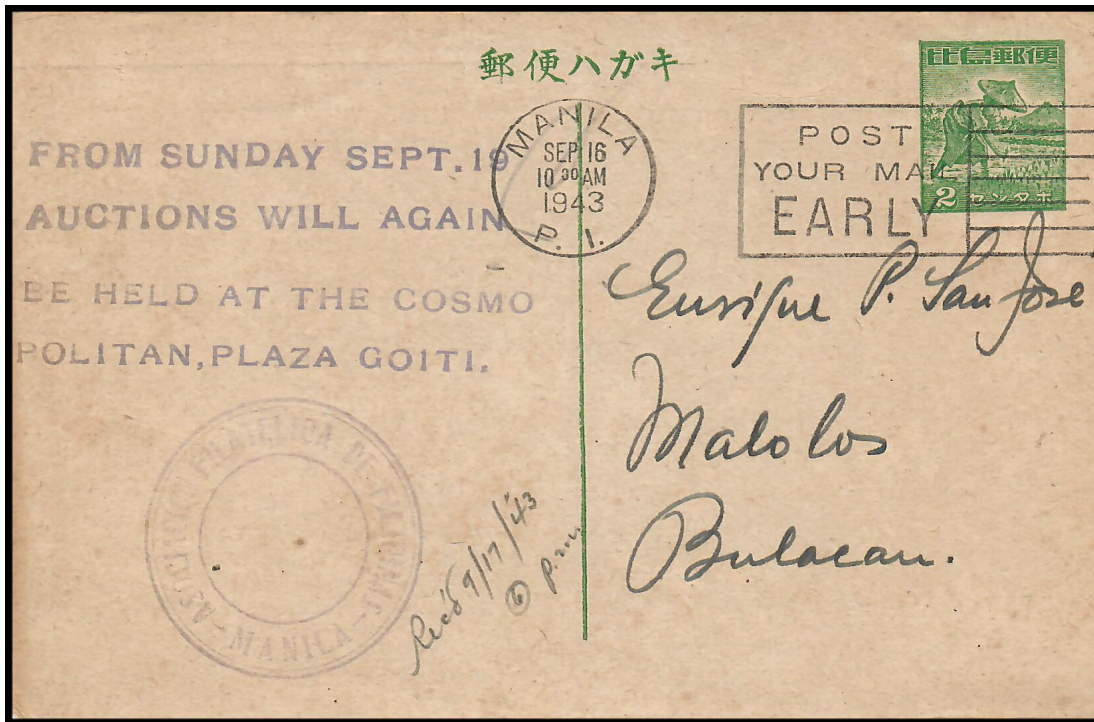 郵便ハガキ
比島郵便
2 センタボ
MANILA
SEP 16
10 30 AM
1943
P. I.
POST
YOUR MAIL
EARLY
FROM SUNDAY SEPT. 19
AUCTIONS WILL AGAIN
BE HELD AT THE COSMO
POLITAN, PLAZA GOITI.
ASOCIACION FILATELICA DE FILIPINAS
-MANILA-
Enrique P. San Jose
Malolos
Bulacan.
Rec'd 9/17/'43
6 p.m.